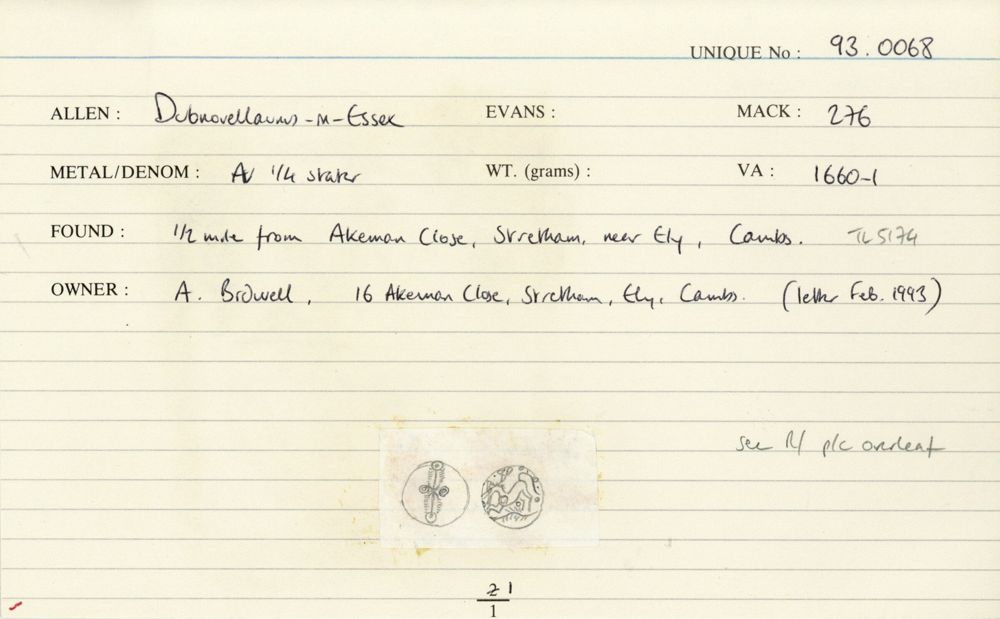 UNIQUE No : 93.0068
ALLEN : Dubnovellaunus-in-Essex EVANS : MACK : 276
METAL/DENOM : AV 1/4 stater WT. (grams) : VA : 1660-1
FOUND : 1/2 mile from Akeman Close, Stretham, near Ely, Cambs. TL 5174
OWNER : A. Bidwell, 16 Akeman Close, Stretham, Ely, Cambs. (letter Feb. 1993)
see p/c overleaf
21
1